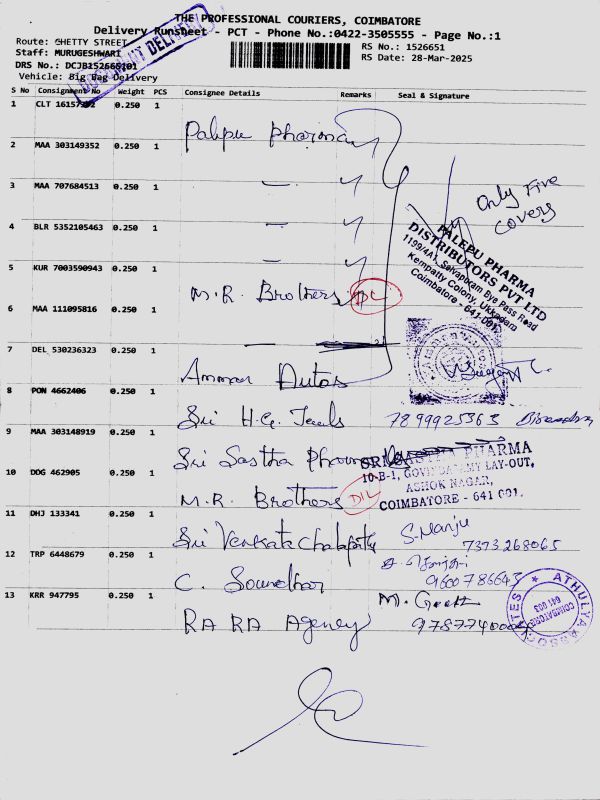 THE PROFESSIONAL COURIERS, COIMBATORE
Delivery Runsheet - PCT - Phone No.:0422-3505555 - Page No.:1
Route: GHETTY STREET
Staff: MURUGESHWARI
DRS No.: DCJB152665101
Vehicle: Big Bag Delivery
RS No.: 1526651
RS Date: 28-Mar-2025
S No Consignment No Weight PCS Consignee Details Remarks Seal & Signature
1 CLT 0.250 1 Palepu Pharma
2 MAA 303149352 0.250 1
3 MAA 707684513 0.250 1
Only Five
covers
4 BLR 5352105463 0.250 1
PALEPU PHARMA
DISTRIBUTORS PVT LTD
1199/4A1, Selvapuram Bye Pass Road
Kempatty Colony, Ukkadam
Coimbatore - 641 001.
5 KUR 7003590943 0.250 1 M.R. Brothers
6 MAA 111095816 0.250 1
7 DEL 530236323 0.250 1 Ammar Autos
8 PON 4662406 0.250 1 Sri H.G. 7899925363
9 MAA 303148919 0.250 1 Sri Sastha Pharma
SRI SASTHA PHARMA
10-B-1, GOVINDASAMY LAY-OUT,
ASHOK NAGAR,
COIMBATORE - 641 001.
10 DDG 462905 0.250 1 M.R. Brothers D/L
11 DHJ 133341 0.250 1 Sri Venkatachalapathy S. Manju
7373268065
12 TRP 6448679 0.250 1 C. Soundhar
9600786643
13 KRR 947795 0.250 1 RA RA Agency M. Geetha
ATHULYA ASSOCIATES
COIMBATORE
641 003